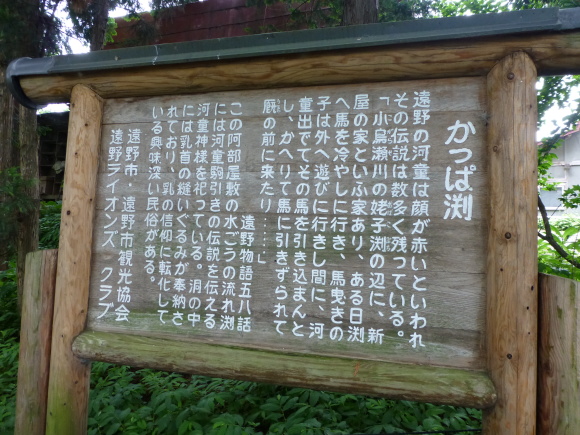 かっぱ渕
遠野の河童は顔が赤いといわれ
その伝説は数多く残っている。
「小烏瀬川の姥子淵の辺に、新
屋の家といふ家あり、ある日淵
へ馬を冷やしに行き、馬曳きの
子は外へ遊びに行きし間に、河
童出でてその馬を引き込まんと
し、かへりて馬に引きずられて
厩の前に来たり……」
遠野物語五八話
この阿部屋敷の水ごうの流れ渕
には河童駒引きの伝説を伝える
河童神様を祀っている。洞の中
には乳首の縫いぐるみが奉納さ
れており、乳の信仰に転化して
いる興味深い民俗がある。
遠野市・遠野市観光協会
遠野ライオンズ クラブ